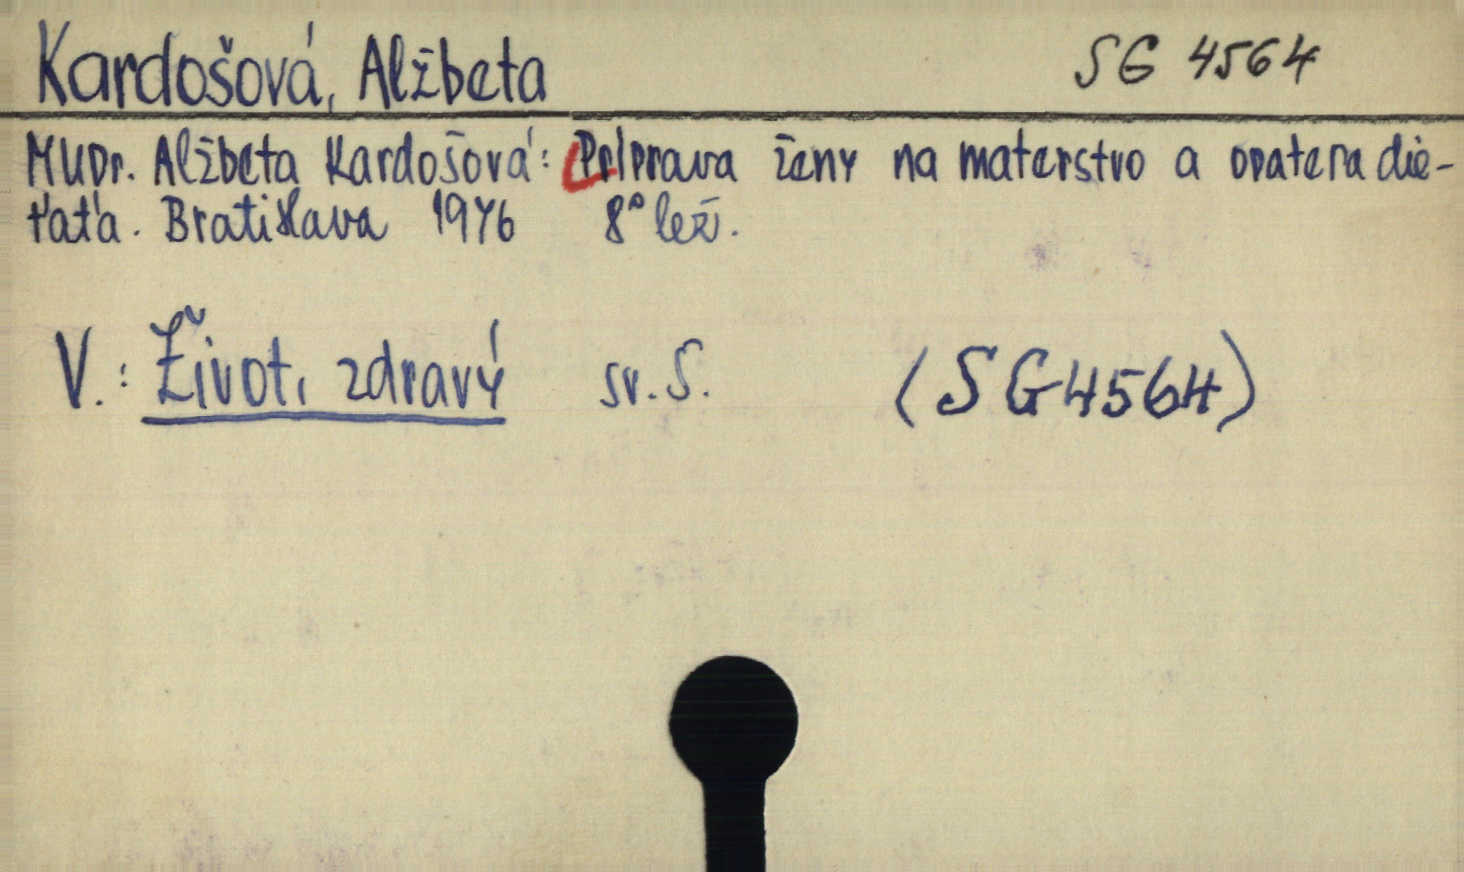 Kardošová, Alžbeta SG 4564
MUDr. Alžbeta Kardošová: Príprava ženy na materstvo a opatera die-
ťaťa. Bratislava 1946 8° lež.
V.: Život, zdravý sv. 5. (SG4564)